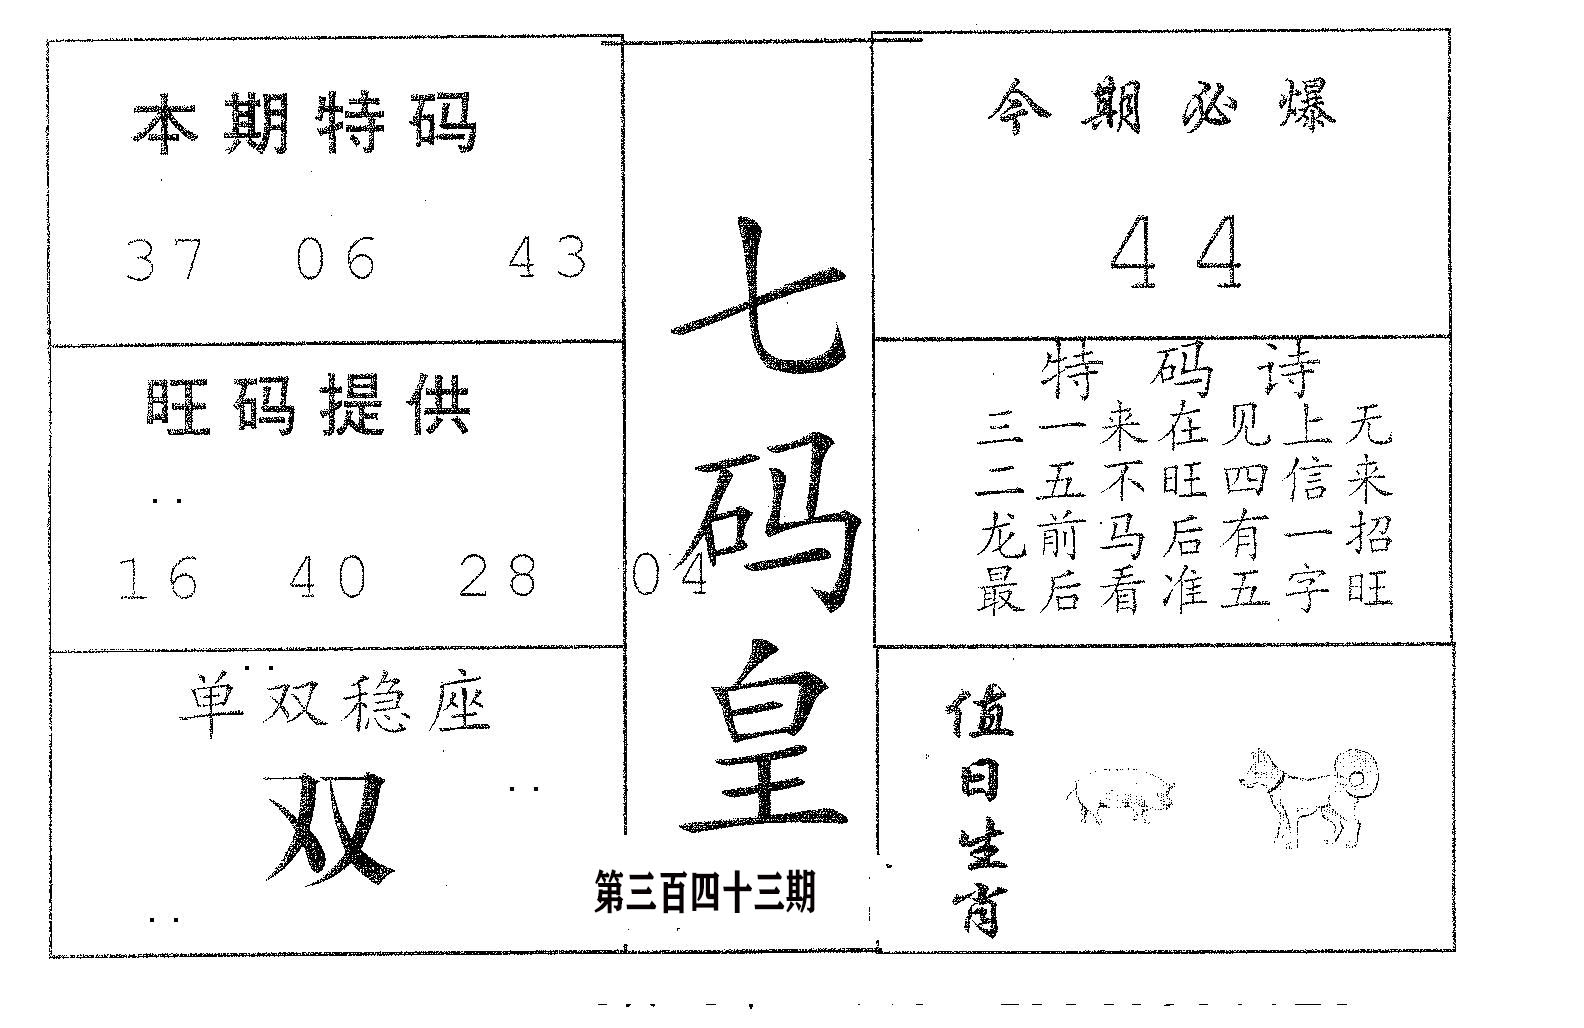 本期特码
37 06 43
旺码提供
16 40 28 04
单双稳座
双
七码皇
第三百四十三期
今期必爆
44
特码诗
三一来在见上无
二五不旺四信来
龙前马后有一招
最后看准五字旺
值日生肖